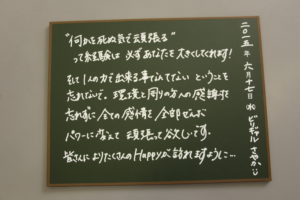 "何かを死ぬ気で頑張る"
って経験は必ずあなたを大きくしてくれます!
そして1人の力で出来る事なんてない ということを
忘れないで。環境と周りの方への感謝を
忘れずに全ての感情を全部ぜんぶ
パワーに変えて 頑張って欲しいです。
皆さんに よりたくさんのHappyが訪れますように…
二〇一五年 六月十七日(水) ビリギャル さやか